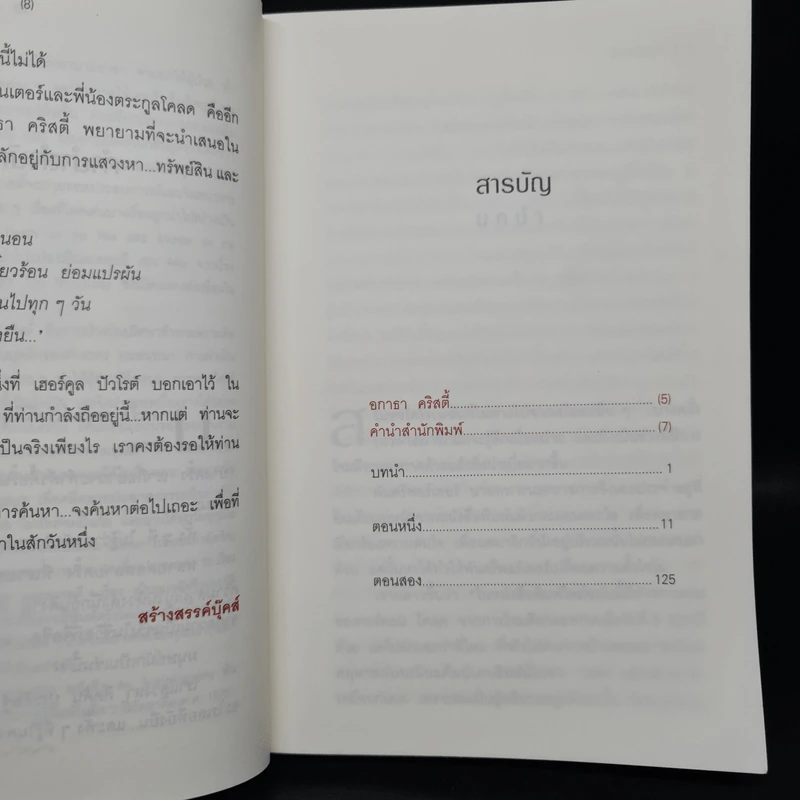 (8)
นี้ไม่ได้
นเตอร์และพี่น้องตระกูลโคลด คืออีก
ธา คริสตี้ พยายามที่จะนำเสนอใน
ลักอยู่กับการแสวงหา...ทรัพย์สิน และ
นอน
ี่ยวร้อน ย่อมแปรผัน
นไปทุก ๆ วัน
งยืน...'
นึ่งที่ เฮอร์คูล ปัวโรต์ บอกเอาไว้ ใน
ที่ท่านกำลังถืออยู่นี้...หากแต่ ท่านจะ
เป็นจริงเพียงไร เราคงต้องรอให้ท่าน
การค้นหา...จงค้นหาต่อไปเถอะ เพื่อที่
าในสักวันหนึ่ง
สร้างสรรค์บุ๊คส์
สารบัญ
อกาธา คริสตี้ (5)
คำนำสำนักพิมพ์ (7)
บทนำ 1
ตอนหนึ่ง 11
ตอนสอง 125